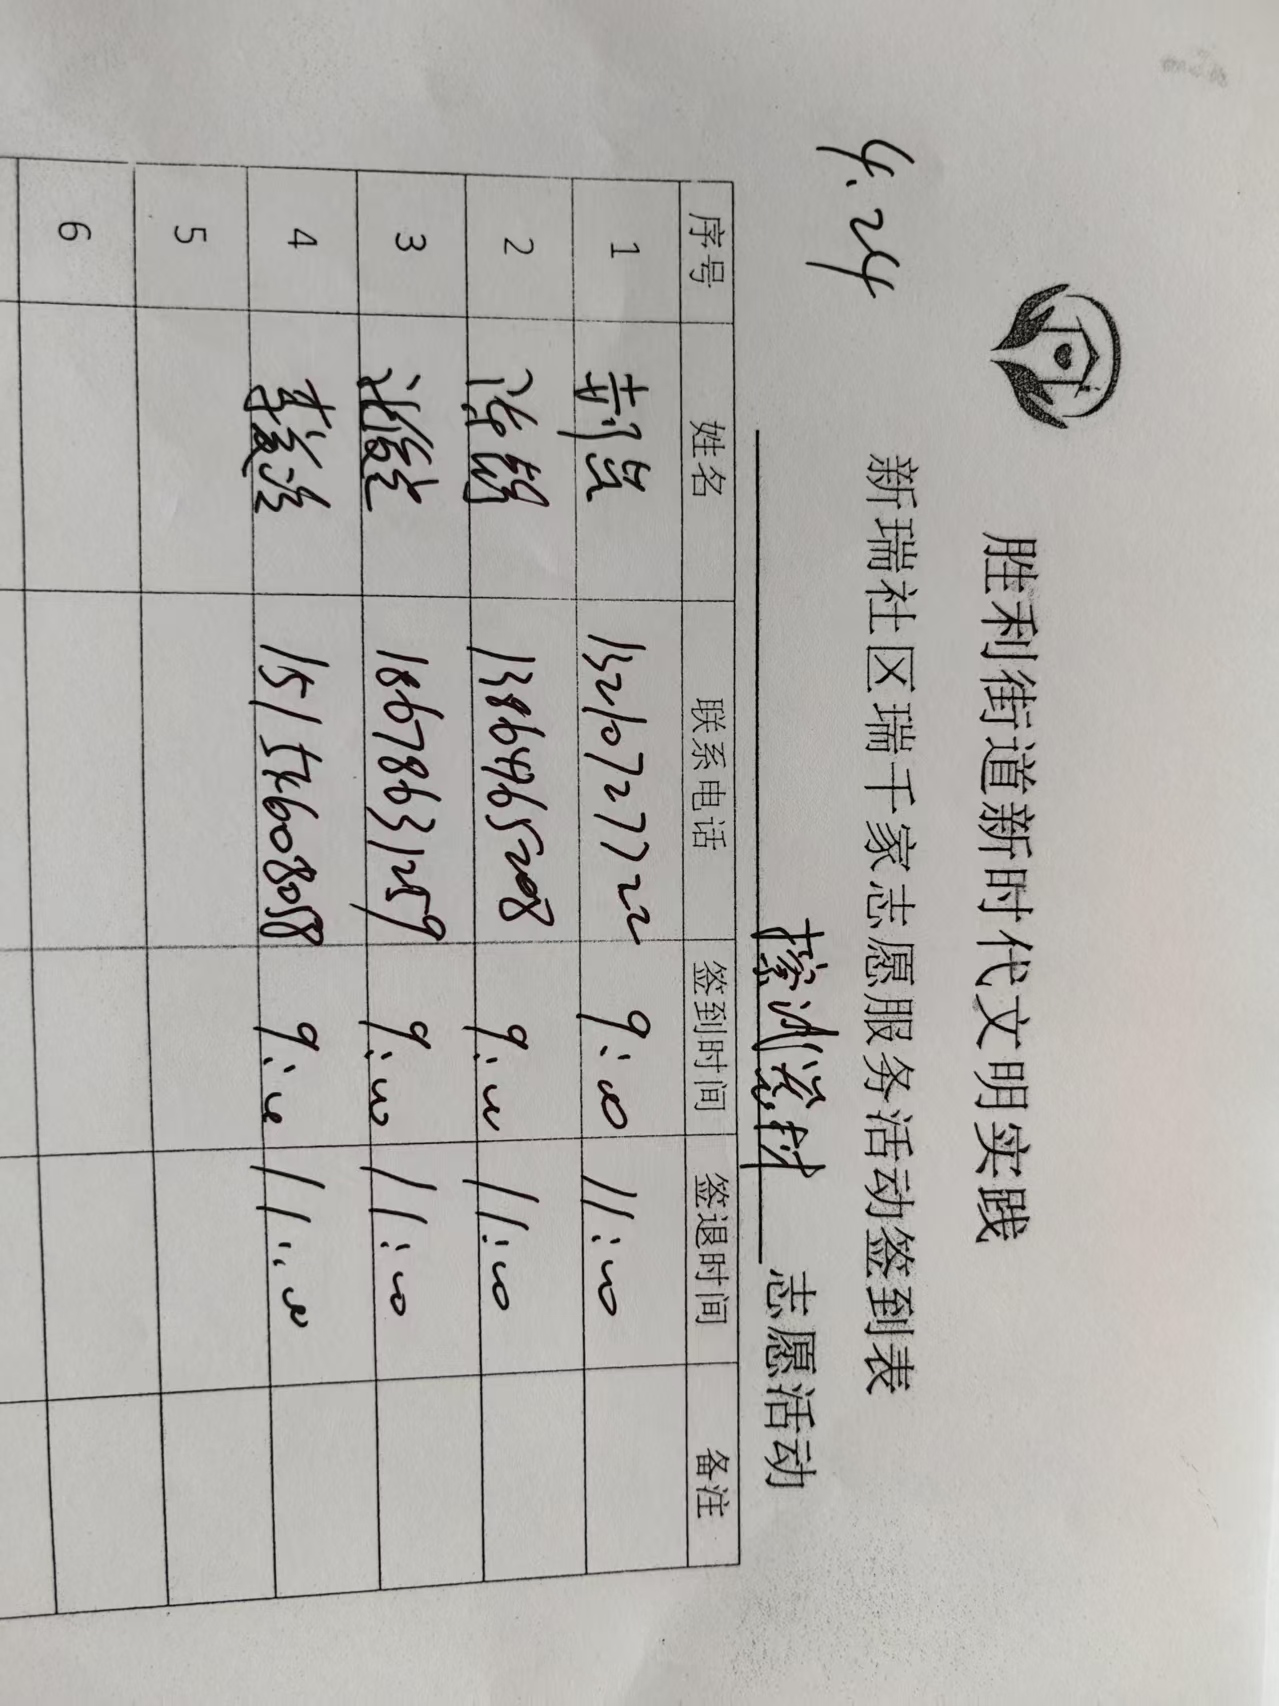 胜利街道新时代文明实践
新瑞社区瑞千家志愿服务活动签到表
4.24
志愿活动
序号 姓名 联系电话 签到时间 签退时间 备注
1 13210727722 9:00 11:00
2 13864965208 9:00 11:00
3 18678631259 9:00 11:00
4 9:00 11:00
5
6